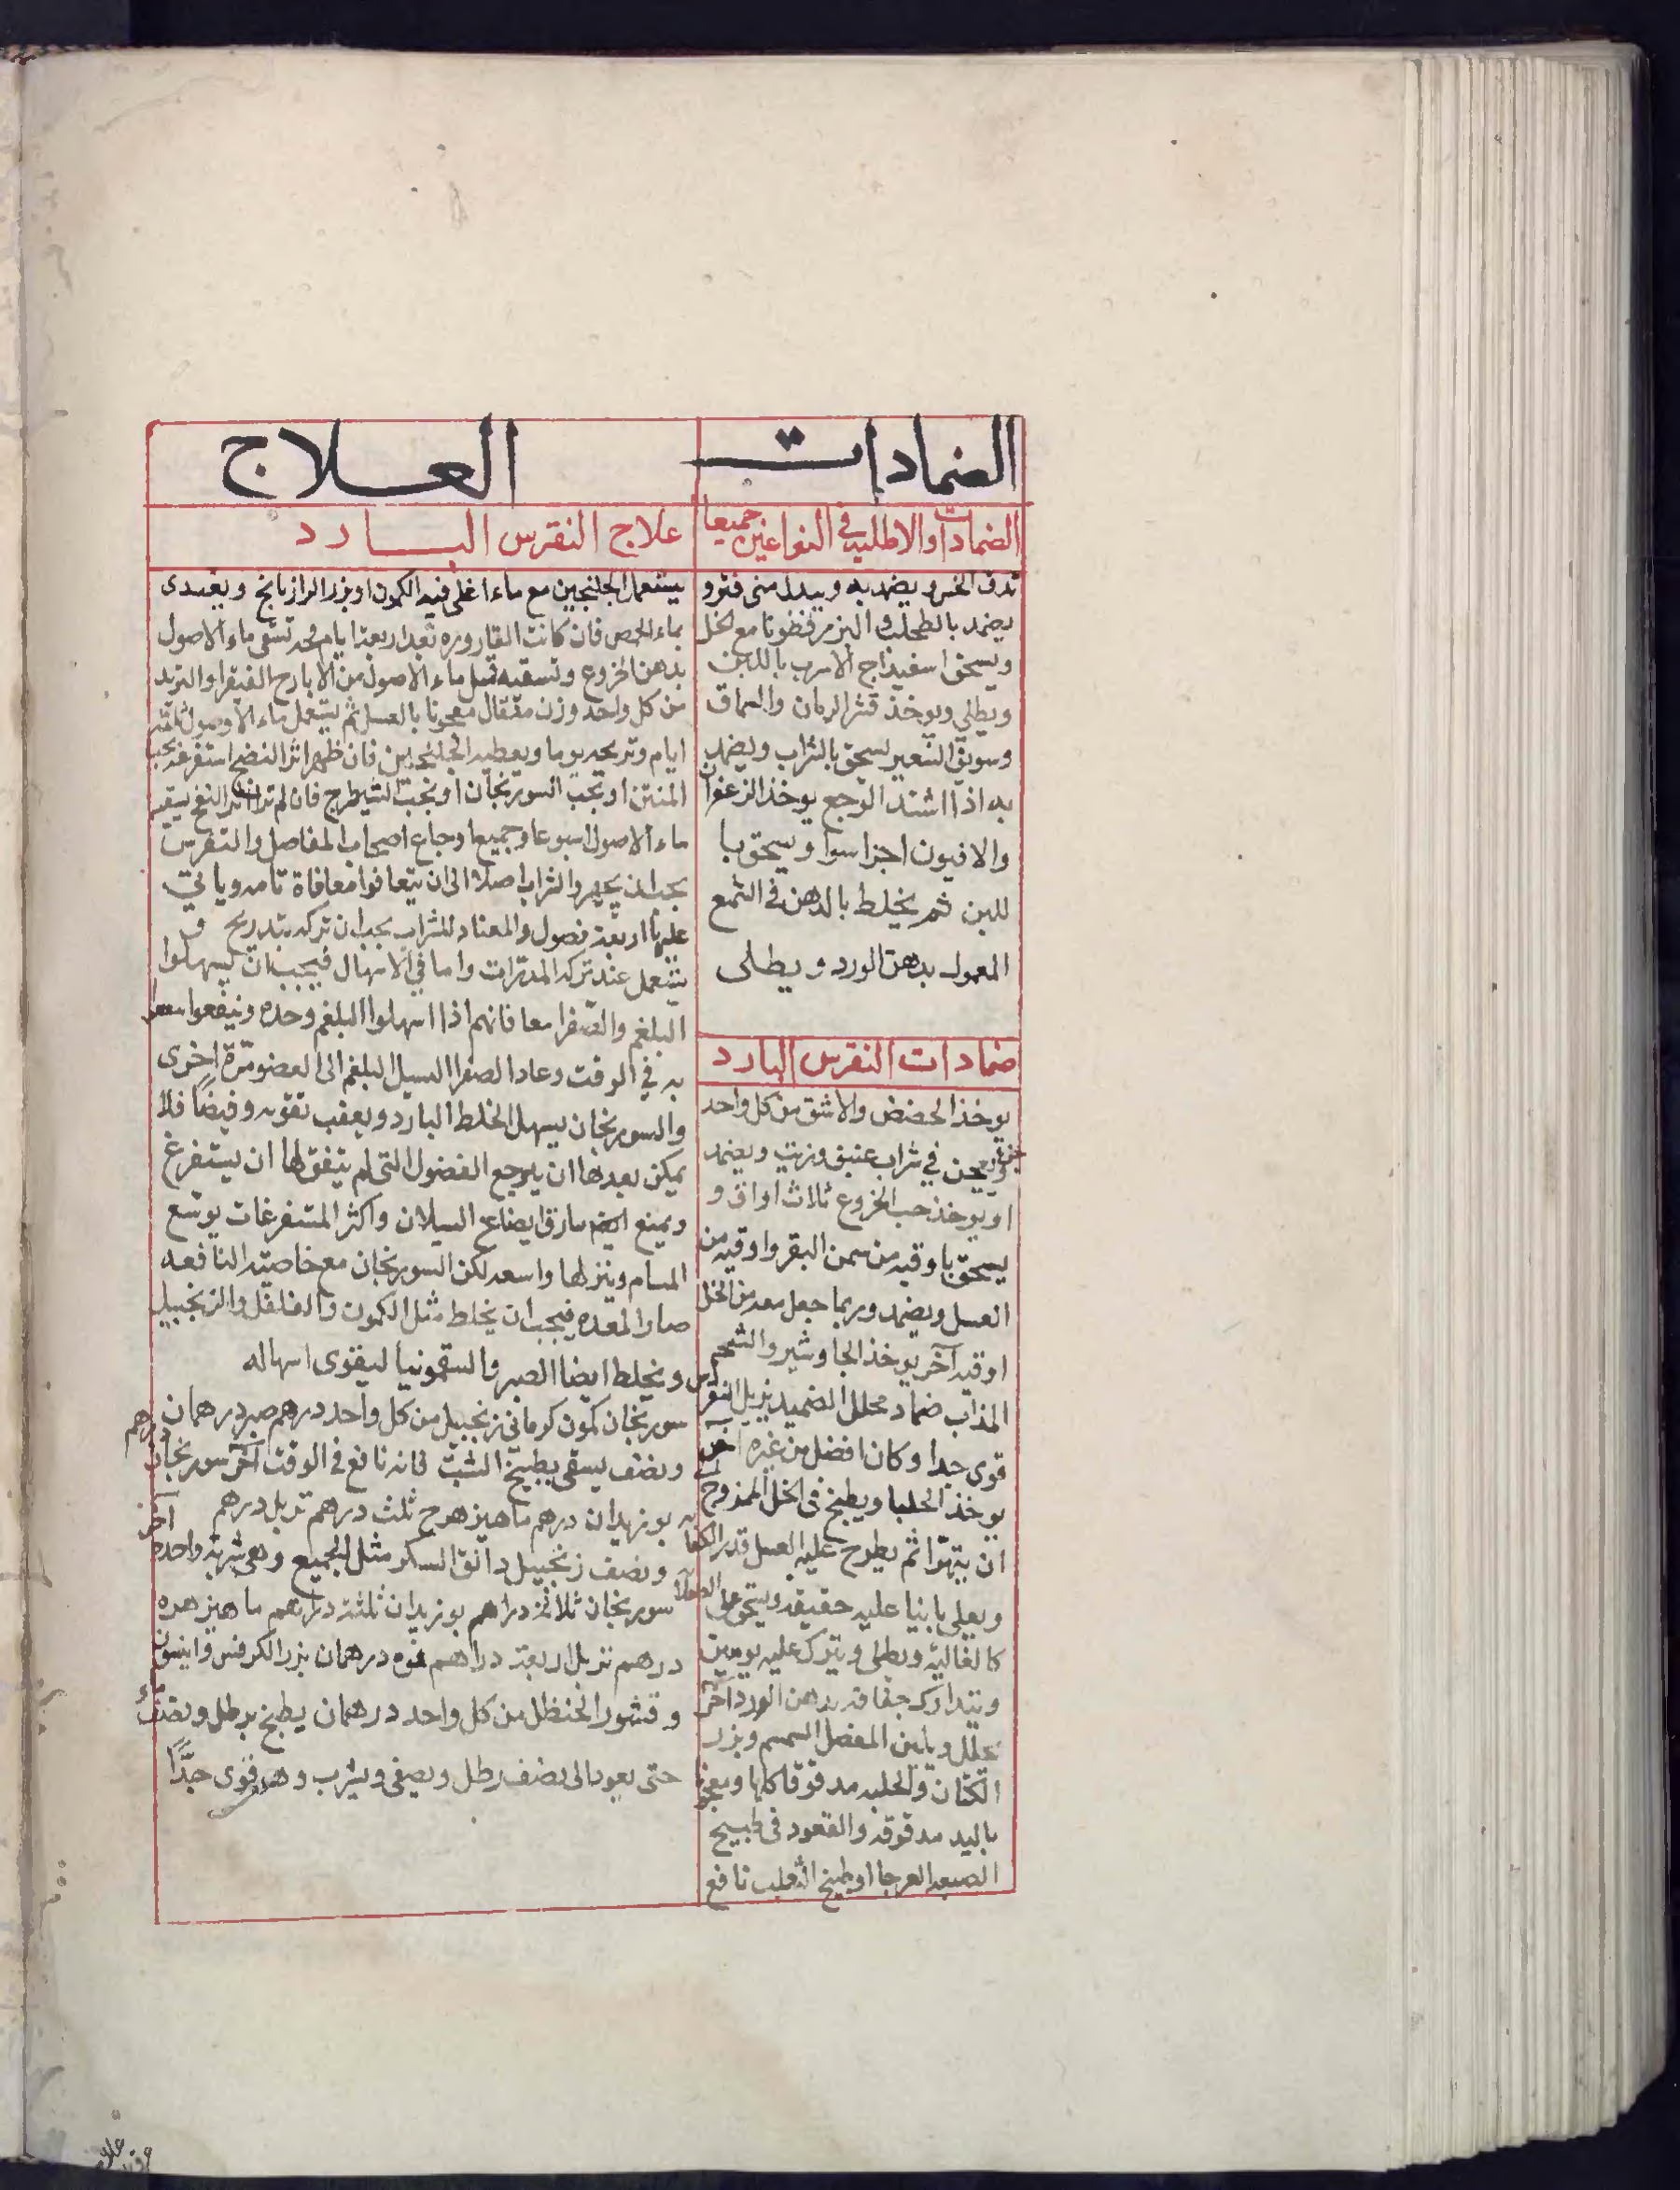 الضمادات
الضمادات والاطلية في النوعين جميعا
تدق الخس ويضمد به ويبدل متى فتر و
يضمد بالطحلب او البزرقطونا مع الخل
ويسحق اسفيذاج الاسرب باللبن
ويطلى ويوخذ قشر الرمان والسماق
وسويق الشعير يسحق بالشراب ويضمد
به اذا اشتد الوجع يوخذ الزعفران
والافيون اجزا سوا ويسحق با
للبن ثم يخلط بالدهن في الشمع
المعمول بدهن الورد ويطلى
ضمادات النقرس البارد
يوخذ الحضض والاشق من كل واحد
ويعجن في شراب عتيق وزيت ويضمد
او يوخذ حب الخروع ثلاث اواق و
يسحق باوقيه من سمن البقر واوقيه من
العسل ويضمد وربما جعل معه من الخل
اوقيه آخر يوخذ الجاوشير والشحم
المذاب ضماد محلل الضميد بزبل
قوى جدا وكان افضل من غيره آخر
يوخذ الحلبا ويطبخ في الخل الممزوج
ان يتهرا ثم يطرح عليه العسل قدر الكفا
ويغلى ثانيا عليه خفيفه ويسحق على الصلا
كالغالية ويطلى ويترك عليه يومين
ويتدارك جفافه بدهن الورد آخر
محلل ويلين المفصل السمسم وبزر
الكتان والحلبه مدقوقا كلها
باليد مدقوقه والقعود في طبيخ
الضبعه العرجا او طبيخ الثعلب نافع
العلاج
علاج النقرس البارد
يستعمل الجلنجبين مع ماء اغلى فيه الكمون او بزر الرازيانج ويغتدى
بماء الحمص فان كانت القاروره بعد اربعة ايام تسقى ماء الاصول
بدهن الخروع وتسقيه قبل ماء الاصول من الايارج الفيقرا والتربد
من كل واحد وزن مثقال معجونا بالعسل ثم يستعمل ماء الاصول ثلثه
ايام وتريحه يوما ويعطيه الجلنجبين فان ظهر اثر النضج استفرغه بحب
المنتن او بحب السورنجان او بحب الشيطرج فان لم تر اثر النضج يسقيه
ماء الاصول اسبوعا وجميعا وجاع اصحاب المفاصل والنقرس
يجب ان يهجروا الشراب اصلا الى ان يتعافوا معافاة تامه وياتي
عليها اربعة فصول والمعتاد للشراب يجب ان تركه بتدريج و
يستعمل عند تركه المدرات واما في الاسهال فيجب ان يسهلوا
البلغم والصفرا معا فانهم اذا اسهلوا البلغم وحده وينفعوا
به في الوقت وعاد الصفرا السيل البلغم الى العضو مرة اخرى
والسورنجان يسهل الخلط البارد ويعقب تقويه وقبضا فلا
يمكن بعدها ان يرجع الفضول التى لم يتفق لها ان يستفرغ
ويمنع السيلان واكثر المستفرغات يوسع
المسام وينزلها واسعه لكن السورنجان مع خاصيته النافعه
ضار المعده فيجب ان يخلط مثل الكمون والفلفل والزنجبيل
ويخلط ايضا الصبر والسقمونيا ليقوى اسهاله
سورنجان كمون كرماني زنجبيل من كل واحد درهم صبر درهمان
ونصف يسقى بطبيخ الشبت فانه نافع في الوقت آخر سورنجان درهم
بوزيدان درهم ماهيزهرج ثلث درهم تربد درهم
ونصف زنجبيل دانق السكر مثل الجميع وهي شربه واحده آخر
سورنجان ثلاثة دراهم بوزيدان ثلثة دراهم ماهيزهره
درهم تربد اربعة دراهم فوه درهمان بزر الكرفس وانيسون
وقشور الحنظل من كل واحد درهمان يطبخ برطل ونصف ماء
حتى يعود الى نصف رطل ويصفى ويشرب وهو قوى جدا